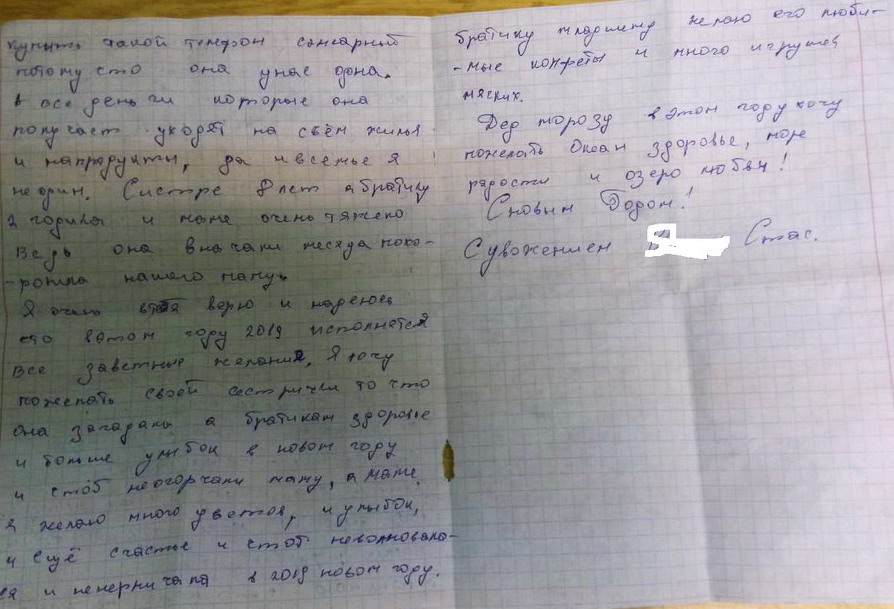 купить такой телефон сенсарный
потому сто она унас одна.
А все деньги которые она
получает уходят на съём жилья
и напродукты, да ивсемье я
неодин. Систре 8 лет абратику
2 годика и маме очень тяжело
Ведь она вначали месяца похо-
-ронила нашего папу.
Я очень верю и надеюсь
сто вэтом году 2019 исполнется
Все заветные желания, Я хочу
пожелать своей сестрички то что
она загадала а братикам здоровье
и больше улыбок в новом году
и стоб неогорчали маму, а маме
я желаю много цветов, и улыбок,
и ещё счастье и стоб неволновала-
ся и ненерничила в 2019 новом году.
братику младшему желаю его люби-
-мые конфеты и много игрушек
мяхких.
Дед морозу вэтом году хочу
пожелать Океан здоровье, море
радости и озеро любви!
Сновым Годом!
Суважением Стас.